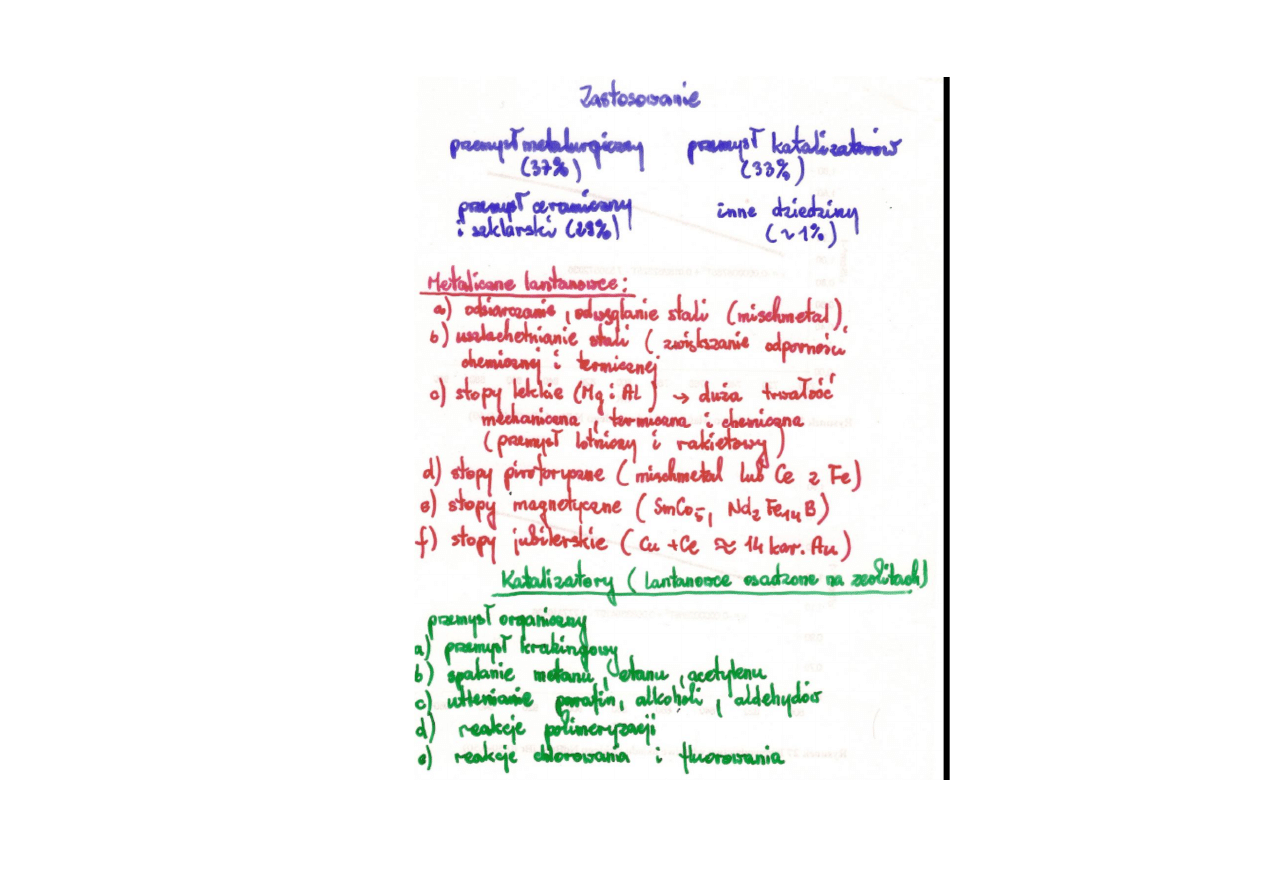 Zastosowanie
przemysł metalurgiczny
(37%)
przemysł katalizatorów
(33%)
przemysł ceramiczny
i szklarski (28%)
inne dziedziny
(~1%)
Metaliczne lantanowce:
a) odsiarczanie, odwęglanie stali (mischmetal)
b) uszlachetnianie stali (zwiększanie odporności
chemicznej i termicznej
c) stopy lekkie (Mg i Al) → duża trwałość
mechaniczna, termiczna i chemiczna
(przemysł lotniczy i rakietowy)
d) stopy piroforyczne (mischmetal lub Ce z Fe)
e) stopy magnetyczne (SmCo₅, Nd₂Fe₁₄B)
f) stopy jubilerskie (Cu + Ce ≈ 14 kar. Au)
Katalizatory (lantanowce osadzone na zeolitach)
przemysł organiczny
a) przemysł krakingowy
b) spalanie metanu, etanu, acetylenu
c) utlenianie parafin, alkoholi, aldehydów
d) reakcje polimeryzacji
e) reakcje chlorowania i fluorowania